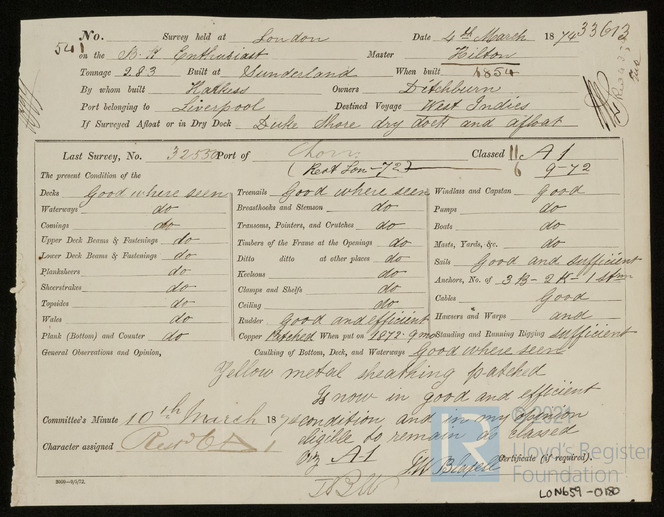 No. Survey held at London Date 4th March 1874 33613
541 on the Bk Enthusiast Master Hilton
Tonnage 283 Built at Sunderland When built 1854
By whom built Harkess Owners Ditchburn
Port belonging to Liverpool Destined Voyage West Indies
If Surveyed Afloat or in Dry Dock Duke Shore dry dock and afloat
Last Survey, No. 32850 Port of Lon Classed 11/6 A1
(Rest Lon-72) 9-72
The present Condition of the
Decks Good where seen Treenails Good where seen Windlass and Capstan good
Waterways do Breasthooks and Stemson do Pumps do
Comings do Transoms, Pointers, and Crutches do Boats do
Upper Deck Beams & Fastenings do Timbers of the Frame at the Openings do Masts, Yards, &c. do
Lower Deck Beams & Fastenings do Ditto ditto at other places do Sails Good and sufficient
Planksheers do Keelsons do Anchors, No. of 3 B - 2 K - 1 Strm
Sheerstrakes do Clamps and Shelfs do Cables Good
Topsides do Ceiling do Hawsers and Warps and
Wales do Rudder Good and efficient
Plank (Bottom) and Counter do Copper Patched When put on 1872-9mo Standing and Running Rigging sufficient
General Observations and Opinion, Caulking of Bottom, Deck, and Waterways Good where seen
Yellow metal sheathing patched
Is now in good and efficient
Committee's Minute 10th March 1874 condition and in my opinion
eligible to remain as classed
Character assigned A1
viz A1 Certificate (if required).
© 2021
Lloyd's Register
Foundation
LON659-0180